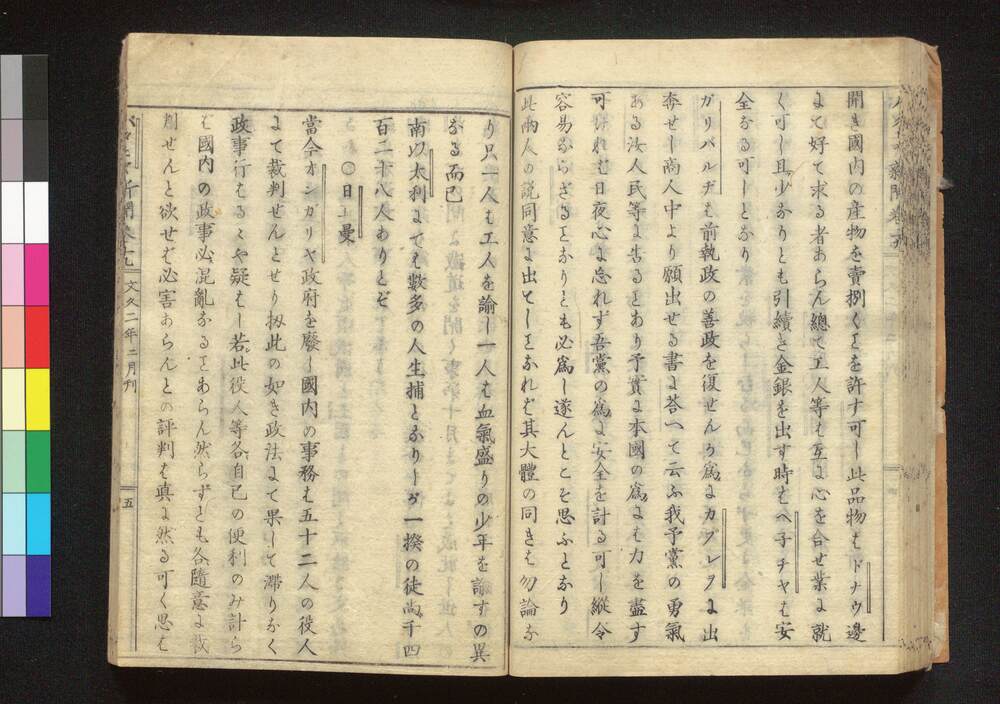 開き國内の産物を賣捌くヿを許す可し此品物もドナウ邊
よて好て求る者あらん總て工人等も互よ心を合せ業よ就
く可し且少なりとも引續き金銀を出す時はヘ子チヤも安
全なる可しとなり
ガリバルヂも前執政の善政を復せんが爲よカプレヲよ出
奔せし商人中より願出せる書よ荅へて云ふ我予黨の勇氣
ある汝人民等よ告るとあり予實よ本國の爲よも力を盡す
可けれも日夜心よ忘れず吾黨の爲よ安全を計る可し縱令
容易ならざるヿなりとも必爲し遂んとこそ思ふとなり
此兩人の説同意よ出てしヿなれば其大體の同きは勿論な
り只一人も工人を諭し一人も血氣盛りの少年を諭すの異
なる而已
南以太利よても數多の人生捕となりしが一揆の徒尚千四
百二十八人ありとぞ
〇日エ曼
當今オシガリヤ政府を廢し國内の事務も五十二人の役人
よて裁判せんとせり扨此の如き政法よて果して滯りなく
政事行もるゝや疑もし若此役人等各自己の便利のみ計ら
ば國内の政事必混亂なるヿあらん然らずとも各隨意よ裁
判せんと欲せば必害あらんとの評判も真よ然る可く思も
新聞卷十九
文久二年二月刊
五